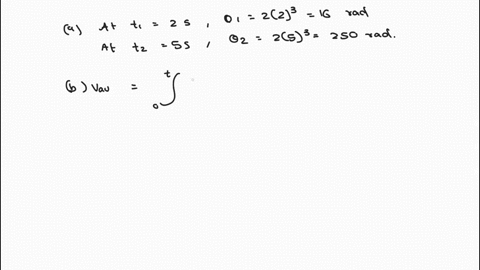 (a) At t₁ = 2 s , θ₁ = 2(2)³ = 16 rad
At t₂ = 5s , θ₂ = 2(5)³ = 250 rad.
(b) Vau = ∫₀ᵗ